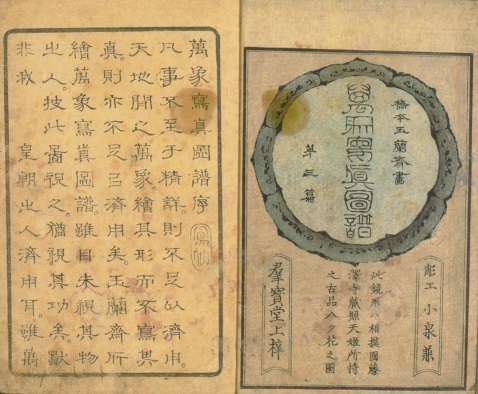 橋本玉蘭齋畫
萬象寫真圖譜
苐三篇
彫工 小泉兼
此鏡ハ相摸國藤
澤寺蔵照天姫所持
之古品八ツ花之圖
羣寳堂上梓
萬象寫真圖譜序
凡事不至于精詳則不足以濟用。
天地間之萬象。繪其形而不寫其
真。則亦不足㠯濟用矣。玉蘭齋所
繪萬象寫真圖譜。雖目未視其物
之人。披此圖視之。猶視其功矣。獨
非我 皇朝之人濟用耳。雖萬